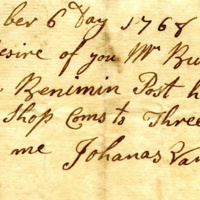 ber 6 Day 1768
desire of you Mr Bu
Benimin Post h
Shop Coms to Three
me Johanas Van